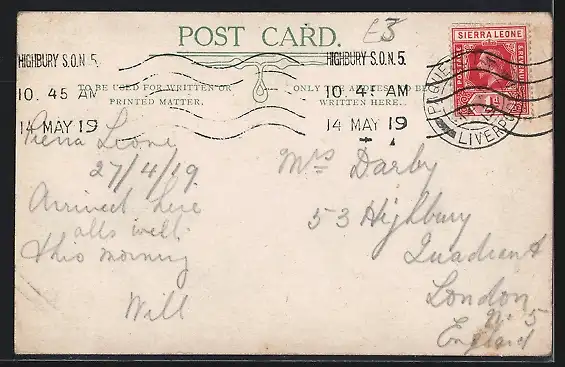 POST CARD.
£3
TO BE USED FOR WRITTEN OR
PRINTED MATTER.
ONLY THE ADDRESS TO BE
WRITTEN HERE.
HIGHBURY S.O.N.5.
10. 45 AM
14 MAY 19
HIGHBURY S.O.N. 5.
10. 45 AM
14 MAY 19
SIERRA LEONE
POSTAGE
& REVENUE
1d
LIVERPO
Sierra Leone
27/4/19
Arrived here
alls well
this morning
Will
Mrs Darby
53 Highbury
Quadrant
London
N. 5
England